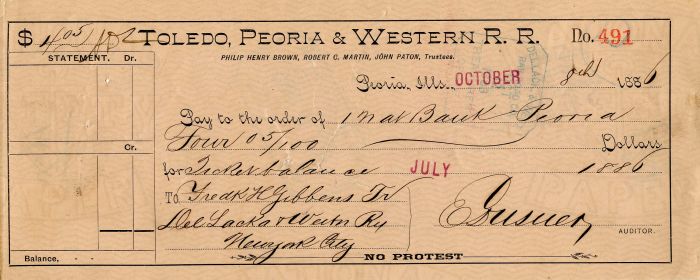 $ 4 05/100 TOLEDO, PEORIA & WESTERN R. R. No. 491
PHILIP HENRY BROWN, ROBERT C. MARTIN, JOHN PATON, Trustees.
STATEMENT. Dr.
Peoria, Ills., OCTOBER 8th 1886
Pay to the order of 1 Nat Bank Peoria
Four 05/100 Dollars
Cr.
for Ticket balance JULY 1886
To Fredk H Gibbens Tr
Del Lacka & Westn Ry
New York City
AUDITOR.
Balance, NO PROTEST